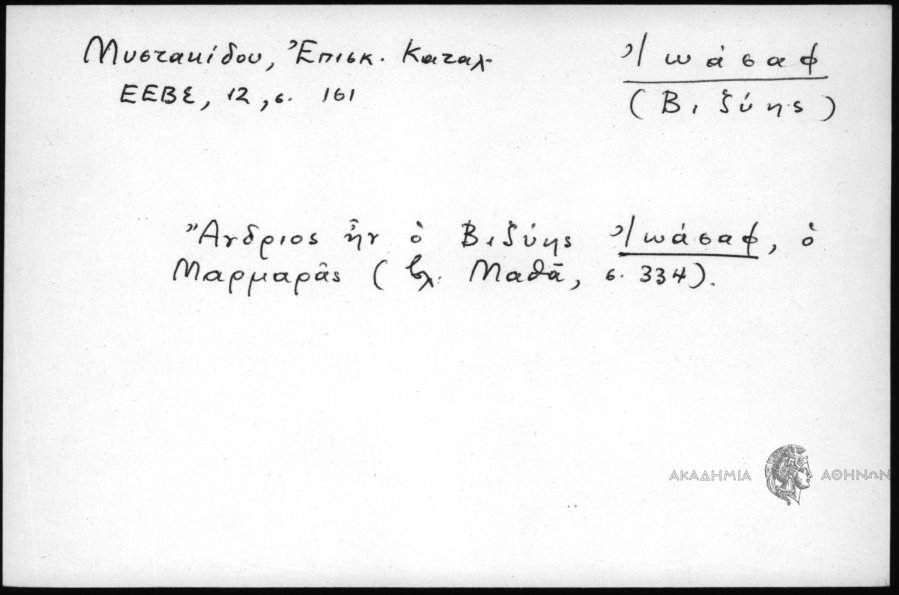 Μυστακίδου, Ἐπισκ. Καταλ. Ἰωάσαφ
ΕΕΒΣ, 12, σ. 161 (Βιζύης)
Ἄνδριος ἦν ὁ Βιζύης Ἰωάσαφ, ὁ
Μαρμαρᾶς (βλ. Μαθᾶ, σ. 334).
ΑΚΑΔΗΜΙΑ ΑΘΗΝΩΝ